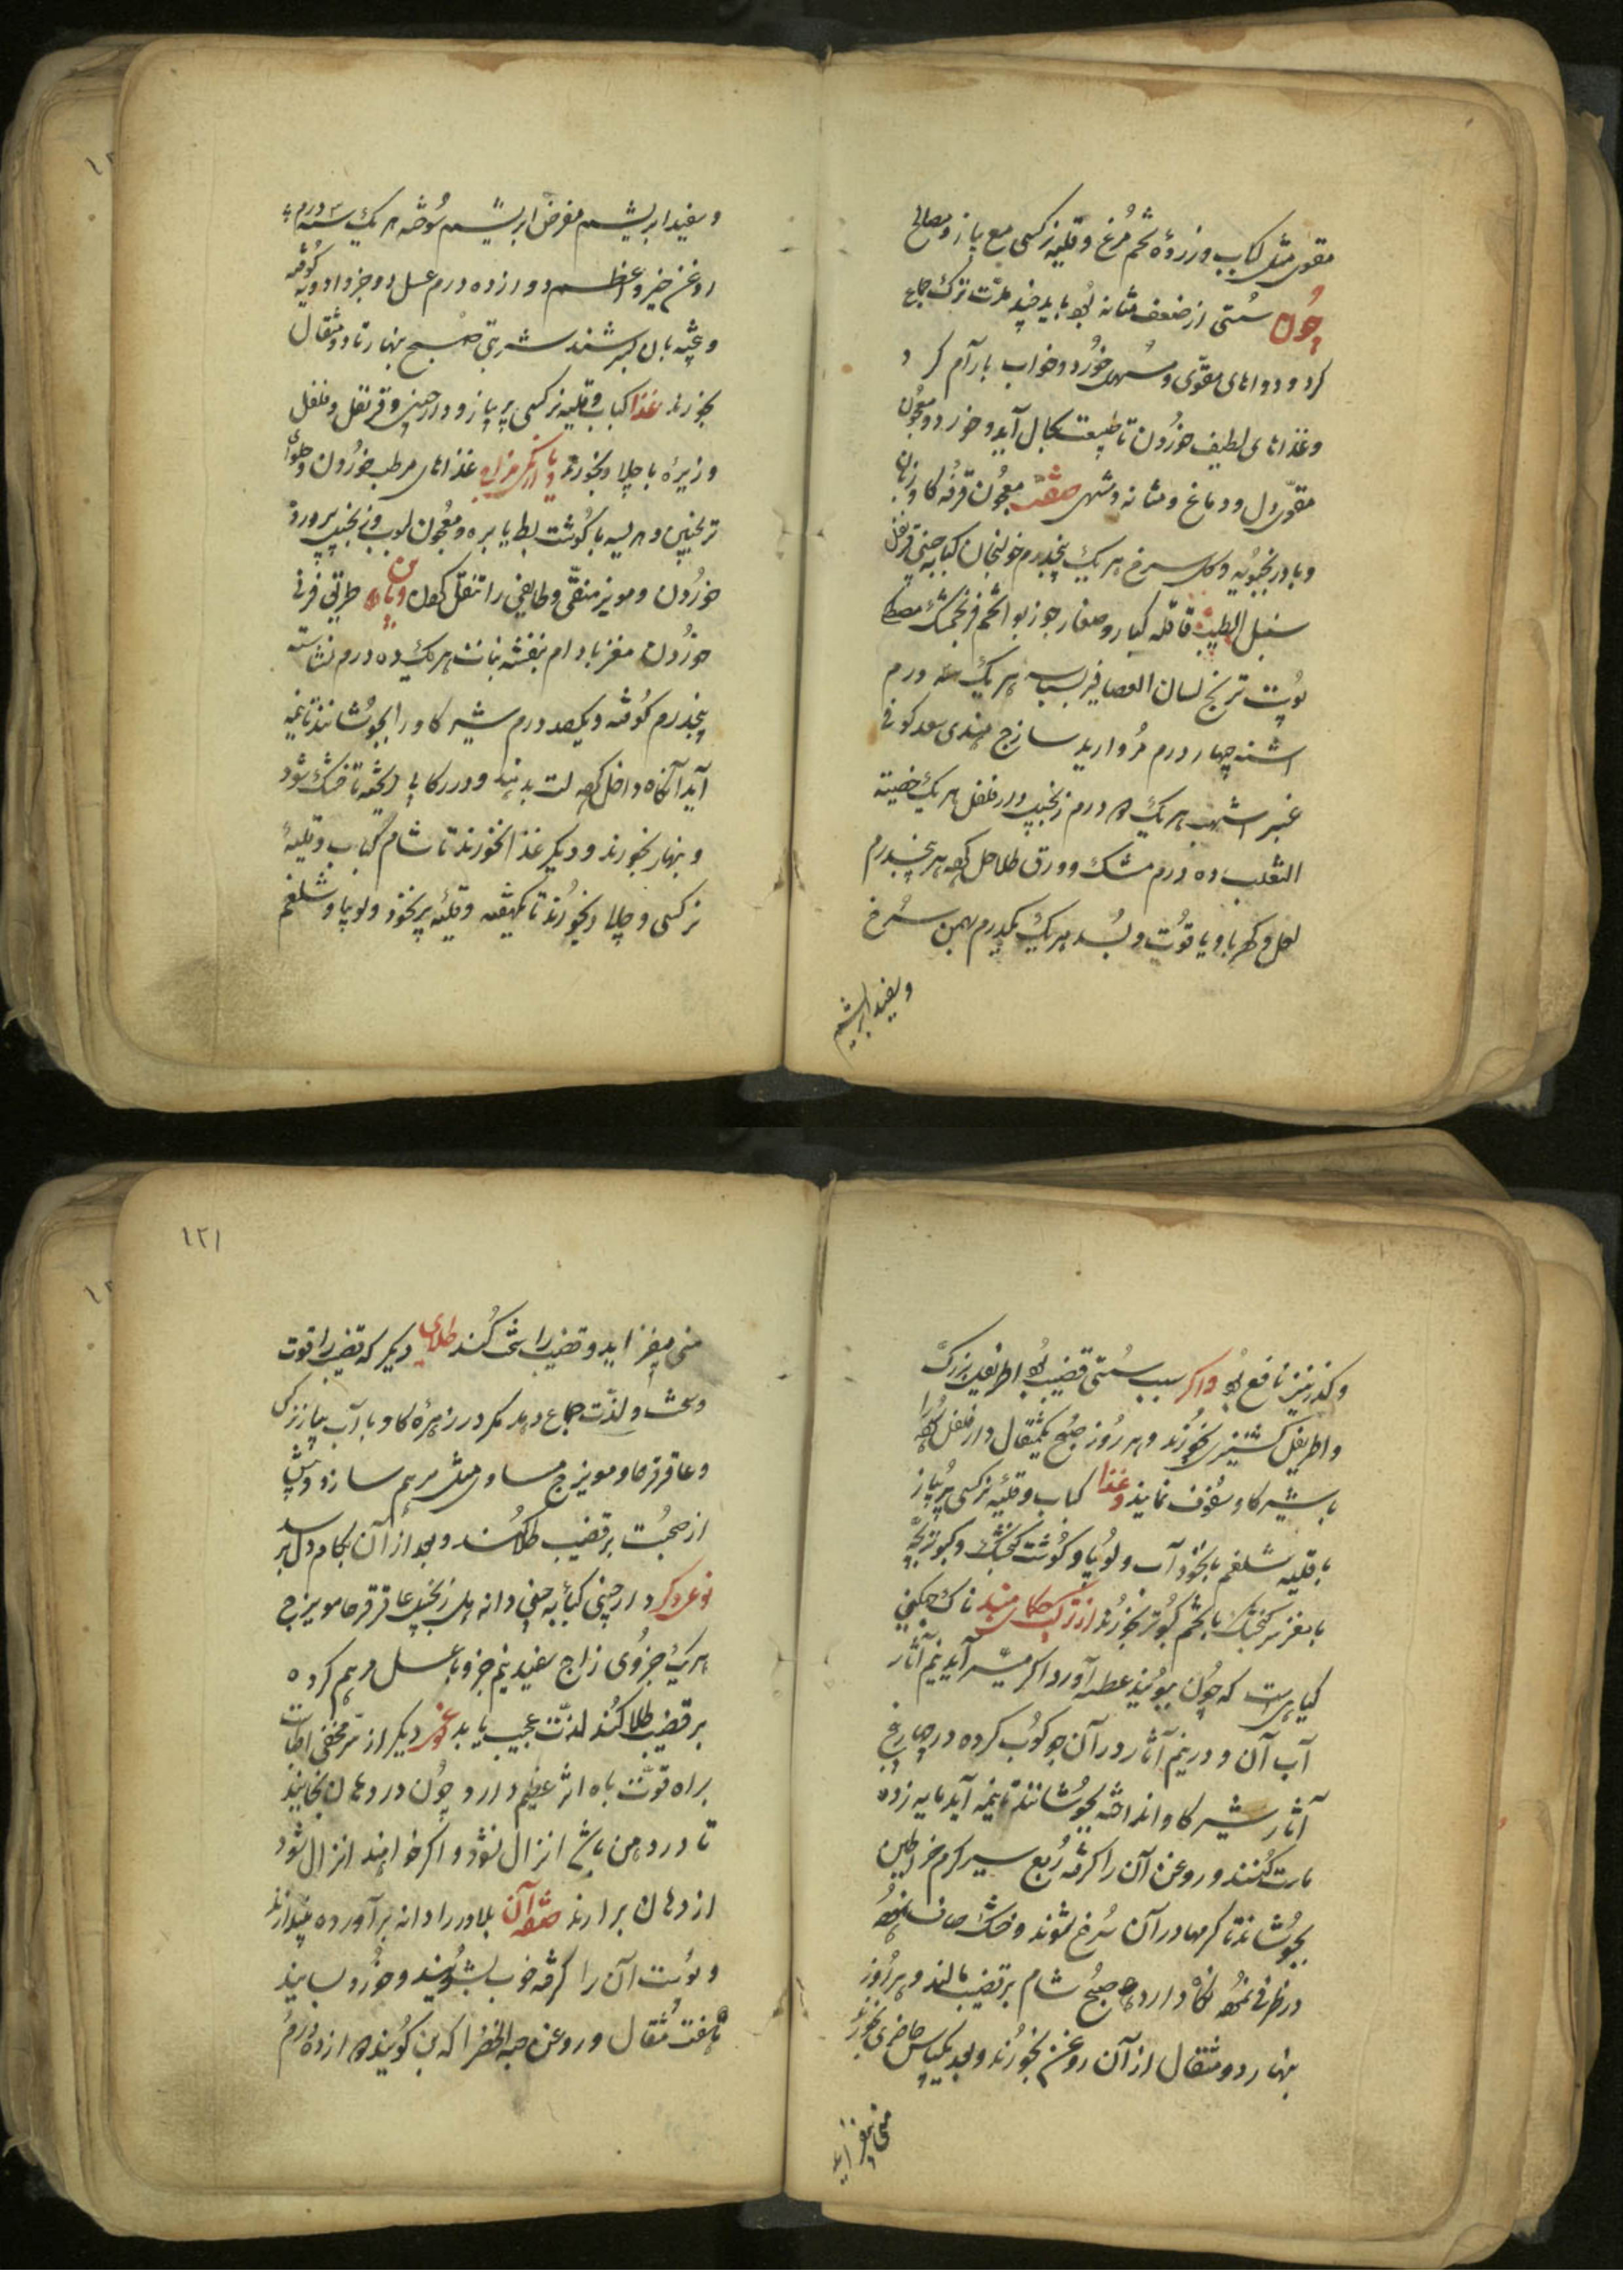 مقوی مثل کباب و زردهٔ تخم مرغ و قلیه نرکسی مع پیاز و مصالح
چون سستی از ضعف مثانه بود باید چند مدت ترک جماع
کرد و دواهای مقوی و مسهی خورد و خواب بارآم کرد
و غذاهای لطیف خوردن تا طبیعت بحال آید و خورد و معجون
مقوی دل و دماغ و مثانه و مشهی صفت معجون قرفه کاو زبان
و بادرنجبویه و کل سرخ هر یک پنجدرم خولنجان کبابه چینی قرنفل
سنبل الطیب قاقله کبار و صغار جوز بوا تخم فرنجمشک مصطکی
پوست ترنج لسان العصافیر بسباسه هر یک سه درم
اشنه چهار درم مروارید سازج هندی سعد کوفی
عنبر اشهب هر یک درم زنجبیل دار فلفل هر یک خصیة
الثعلب ده درم مشک و ورق طلا حل کرده هر پنجدرم
لعل و کهربا و یاقوت و بسد هر یک یکدرم بهمن سرخ
و سفید ابریشم
و سفید ابریشم مقرض ابریشم سوخته هر یک سه درم
روغن خیرو اعظم دوازده درم عسل دو جزو ادویه کوفته
و بیخته بان بسرشند شربتی صبح نهار تا دو مثقال
بخورند غذا کباب و قلیه نرکسی پر پیاز و دارچینی و قرنفل و فلفل
و زیره با چلاو بخورند و یا اکر غذاهای مرطب خوردن و حلوای
ترنجبین و هریسه با کوشت بط یا بره و معجون لبوب و زنجبیل پرورده
خوردن و مویز منقی و طایفی را تنقل کردن طریق فرنی
خوردن مغز بادام بنفشه نبات هر یک ده درم نشاسته
پنجدرم کوفته و یکصد درم شیر کاو را بجوشانند تا نیمه
آید آنکاه داخل کرده لت بدهند و در رکابی ریخته تا خشک شود
و نهار بخورند و دیکر غذا نخورند تا شام کباب و قلیهٔ
نرکسی و چلاو بخورند تا یکهفته و قلیه پر نخود و لوبیا و شلغم
و کذر نیز نافع بود و اکر سبب سستی قضیب بود اطریفل بزرک
و اطریفل کشنیزی بخورند و هر روز صبح یکمثقال دار فلفل کرده را
با شیر کاو سفوف نمایند و غذا کباب و قلیه نرکسی پر پیاز
با قلیه شلغم با نخود آب و لوبیا و کوشت کنجشک و کبوتر بچه
با مغز سر کنجشک با تخم کبوتر بخورند از ترکیب حکمای هند ناک چکنی
کیاهی است که چون ببویند عطسه آورد اکر میسر آید نیم آثار
آب آن و در نیم آثار در آن جو کوب کرده در چارنیم
آثار شیر کاو انداخته بجوشانند تا نیمه آید مایه زده
ماست کنند و روغن آن را کرفته ربع سیر کرم خراطین
بجوشانند تا کرمها در آن سرخ شوند و خشک صاف نموده
در ظرفی نکاه دارد و صبح شام بر قضیب مالند و هر روز
نهار دو مثقال از آن روغن بخورند و بعد یکپاس حاضری بخورند
منی بیفزاید
١٢١
منی بیفزاید و قضیب را سخت کند طلای دیکر که قضیب را قوت
و سخت و لذت جماع دهد مکرر در زهره کاو با آب پیاز نرکس
و عاقرقرحا و مویزج مساوی مثل مرهم سازد و پیش
از صحبت بر قضیب طلا کنند و بعد از آن بکام دل برسد
نوع دیکر دارچینی کبابه چینی دانه هل زنجبیل عاقرقرحا مویزج
هر یک جزوی زاج سفید نیم جزو با عسل مرهم کرده
بر قضیب طلا کند لذت عجیب یابد نوع دیکر از سر مخفی اطباست
براه قوت باه اثر عظیم دارد و چون در دهان بخایند
تا در دهن باشد انزال نشود و اکر خواهند انزال شود
از دهان برارند صفت آن بلادر را دانه برآورده بیندازند
و پوست آن را کرفته خوب بشویند و خورد بسایند
هفت مثقال و روغن حبه الخضرا که بن کویند دوازده درم